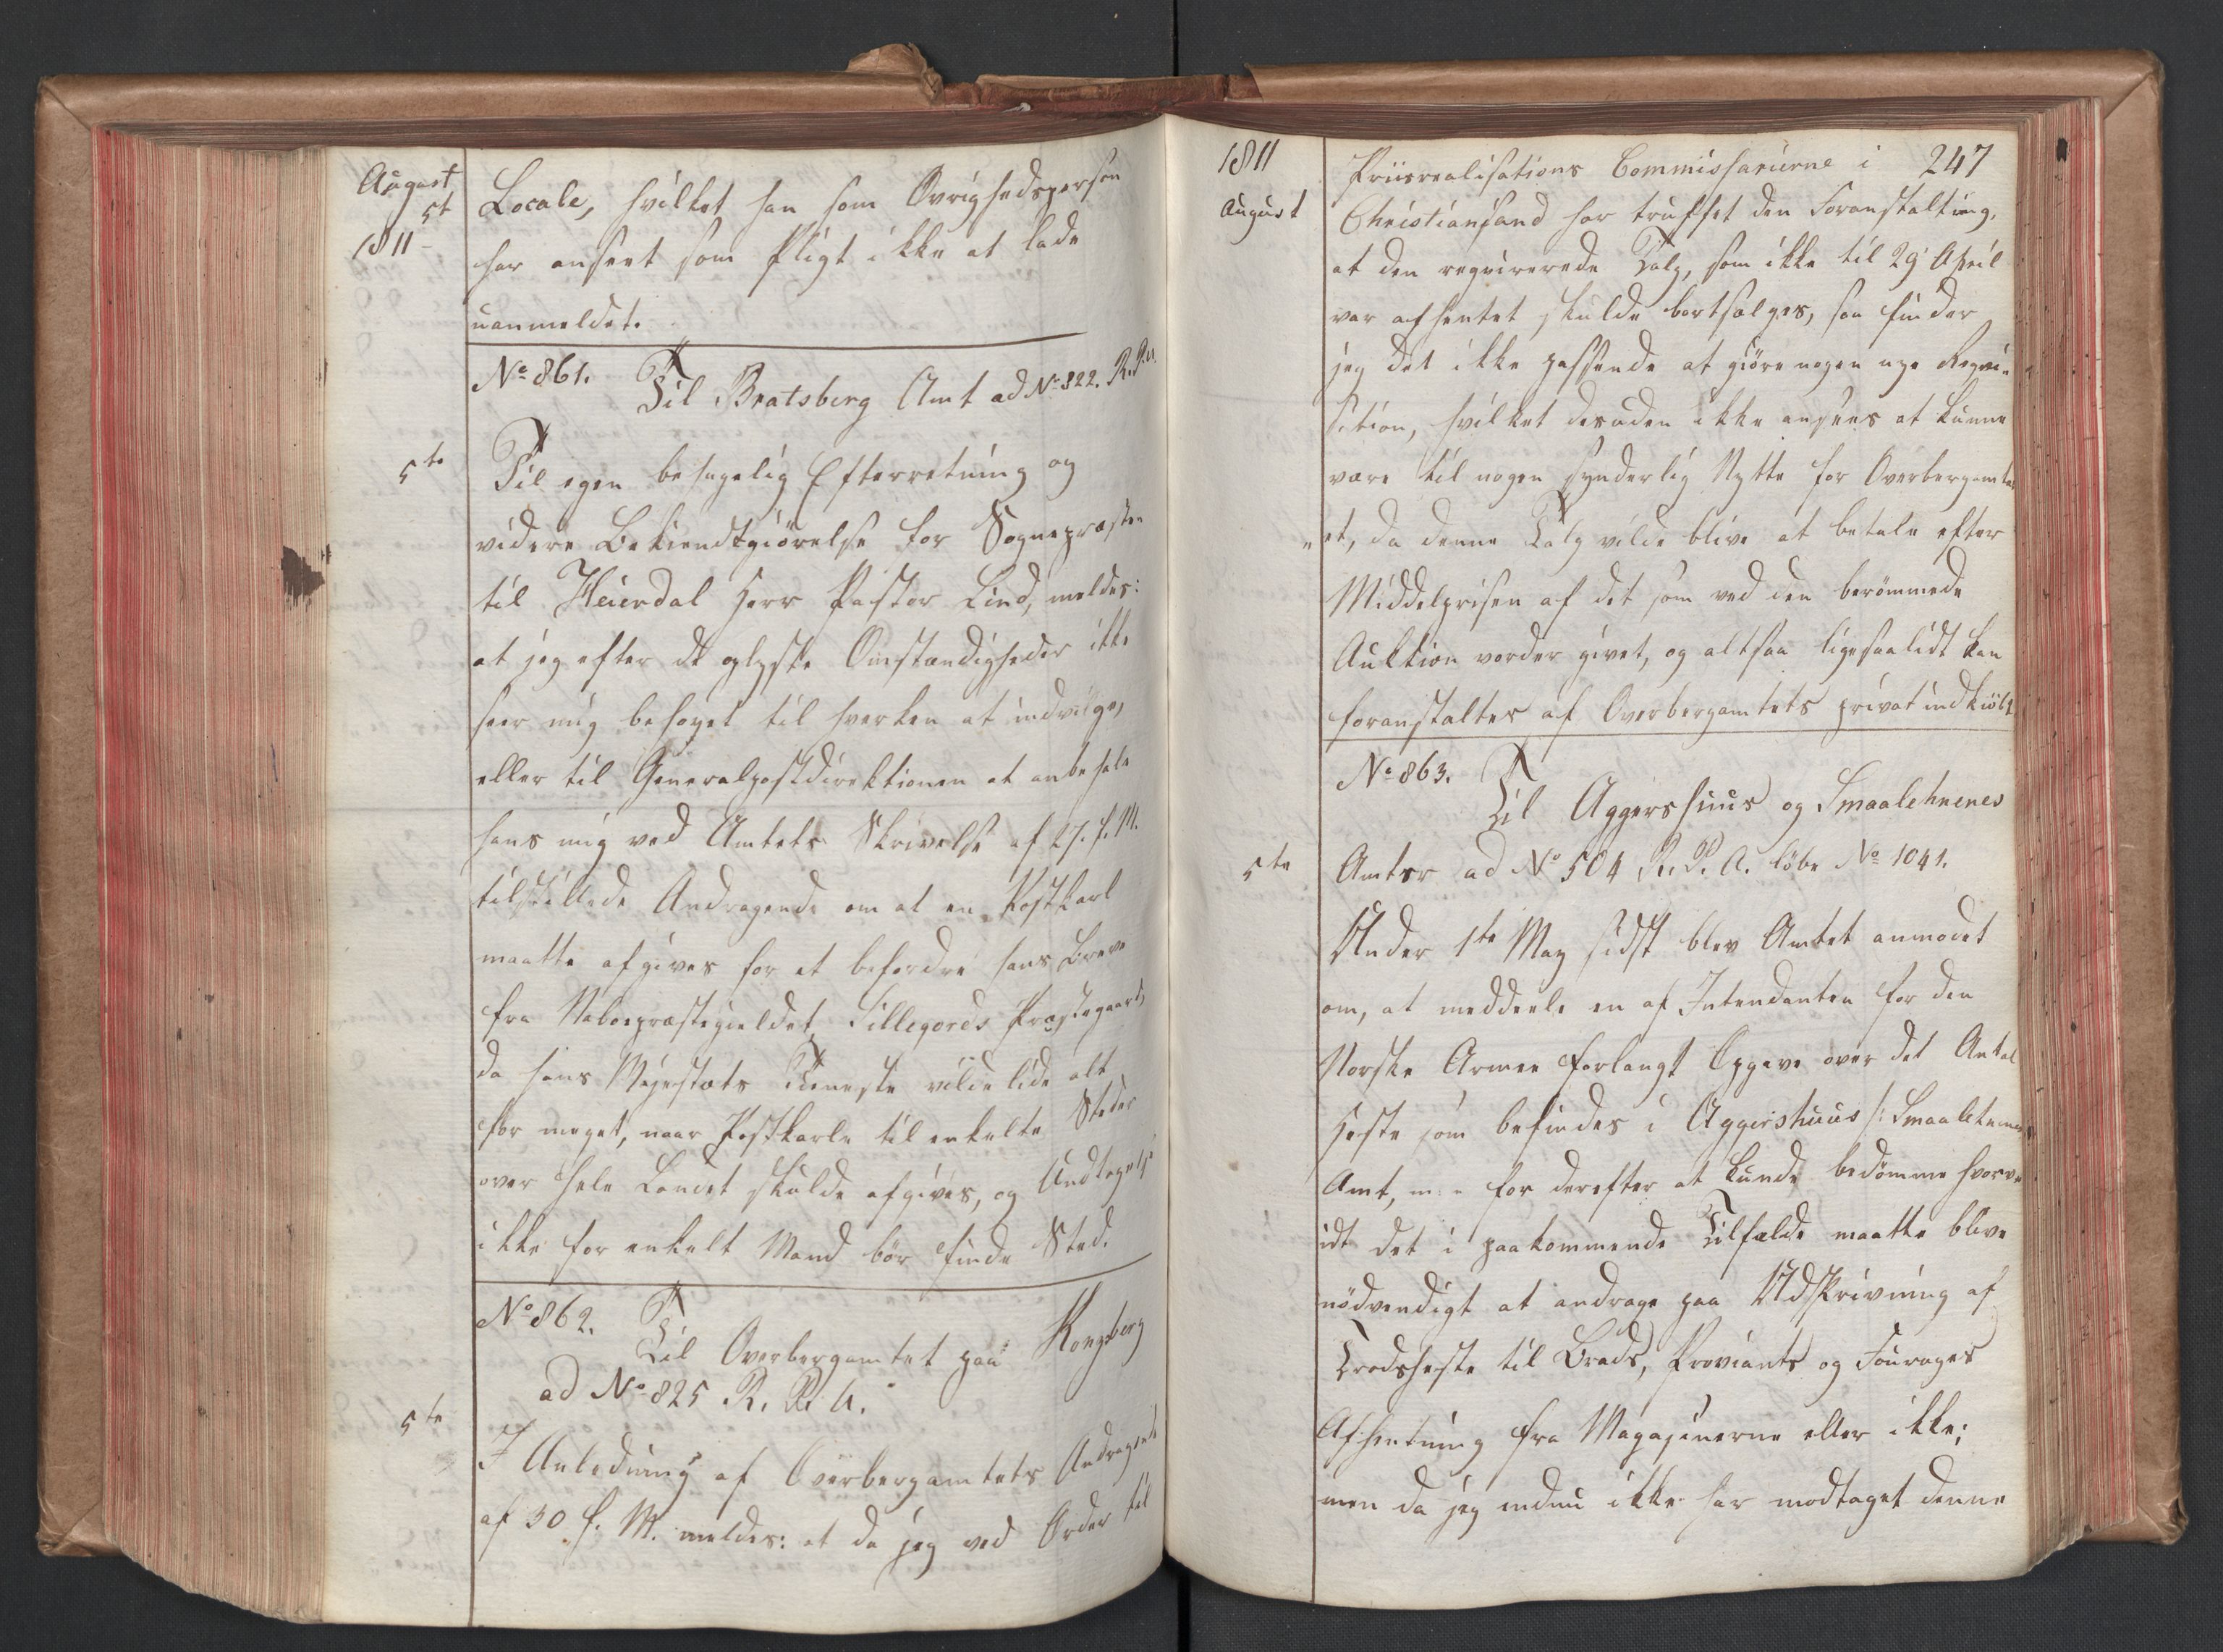 August
5t
1811
Locale, hvilket han som Øvrighedsperson
har anseet som Pligt ikke at lade
uanmeldet.
No 861. Til Bratsberg Amt ad No 822. R. P. A.
5te
Til egen behagelig Efterretning og
videre Bekiendtgiörelse for Sognepræsten
til Heierdal Herr Pastor Lind, meldes:
at jeg efter de oplyste Omstændigheder ikke
seer mig beføyet til hverken at indvilge,
eller til Generalpostdirektionen at anbefale
hans mig ved Amtets Skrivelse af 27. f. M.
tilstillede Andragende om at en Postkarl
maatte afgives for at befordre hans Breve
fra Naboepræstegieldet Sillegords Præstegaard,
da Hans Majestæts Tieneste vilde lide alt
for meget, naar Postkarle til enkelte Steder
over hele Landet skulde afgives, og Undtagelse
ikke for enkelt Mand bör finde Sted.
No 862. Til Overbergamtet paa Kongsberg
ad No 825 R. P. A.
5te
I Anledning af Overbergamtets Andragende
af 30 f. M. meldes: at da jeg ved Order til
1811
August
247
Priisrealisations Commissairerne i
Christiansand har truffet den Foranstaltning,
at den reqvirerede Talg, som ikke til 29 April
var afhentet skulde bortsælges, saa finder
jeg det ikke passende at giöre nogen nye Reqvi-
sition, hvilket desuden ikke ansees at kunne
være til nogen synderlig Nytte for Overbergamt-
et, da denne Talg vilde blive at betale efter
Middelprisen af det som ved den berömmede
Auktion vorder givet, og altsaa ligesaalidt kan
foranstaltes af Overbergamtets privat indkiöbt
No 863. Til Aggershuus og Smaalehnenes
5te
Amter ad No 504 R. P. A. löbe No 1041.
Under 1te May sidst blev Amtet anmodet
om, at meddeele en af Intendanten for den
Norske Armee forlangt Opgave over det Antal
Heste som befindes i Aggershuus /: Smaalehnenes
Amt, for derefter at kunde bedömme hvorv-
idt det i paakommende Tilfælde maatte blive
nödvendigt at andrage paa Udskrivning af
Trodsheste til Bröds, Proviants og Fourages
Afhentning fra Magazinerne eller ikke;
men da jeg endnu ikke har modtaget denne